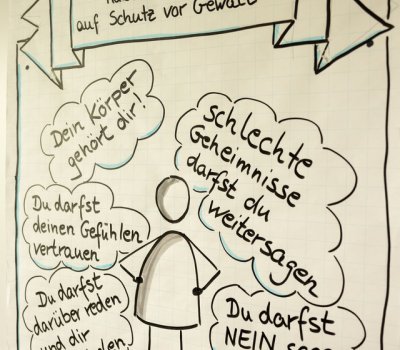 auf Schutz vor Gewalt
Dein Körper
gehört dir!
schlechte
Geheimnisse
darfst du
weitersagen
Du darfst
deinen Gefühlen
vertrauen
Du darfst
darüber reden
und dir
Du darfst
NEIN